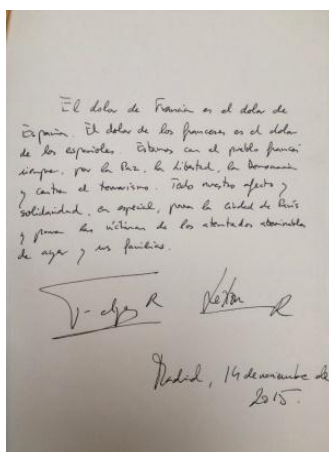 El dolor de Francia es el dolor de
España. El dolor de los franceses es el dolor
de los españoles. Estamos con el pueblo francés
siempre, por la Paz, la Libertad, la Democracia
y contra el terrorismo. Todo nuestro afecto y
solidaridad, en especial, para la ciudad de París
y para las víctimas de los atentados abominables
de ayer y sus familias.
Felipe R Letizia R
Madrid, 14 de noviembre de
2015.